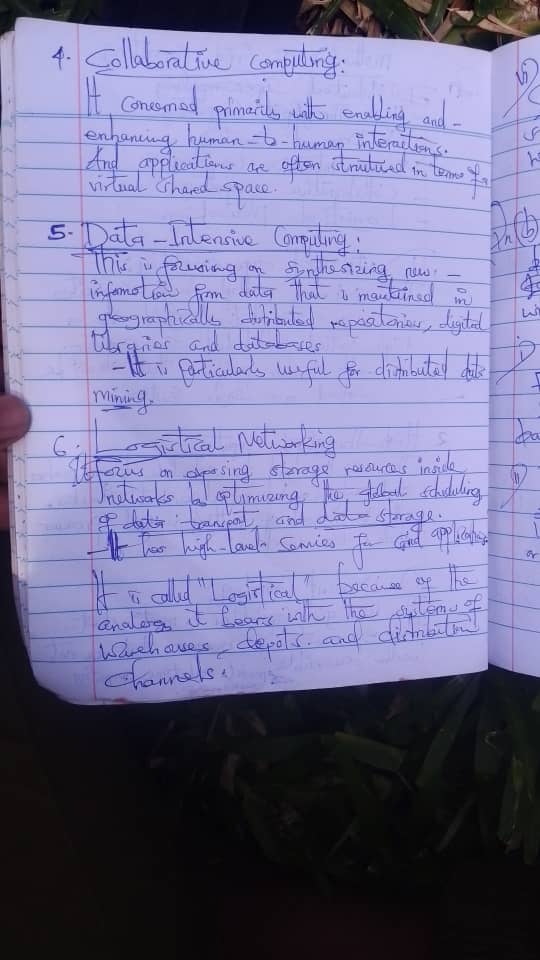 4. Collaborative Computing:
It Concerned primarily with enabling and -
enhancing human-to-human interactions.
And applications are often structured in terms of a
virtual shared space.
5- Data-Intensive Computing:
This is focusing on synthesizing new -
information from data that is maintained in
geographically distributed repositories, digital
libraries and databases
- It is particularly useful for distributed data
mining.
6. Logistical Networking
It focus on exposing storage resources inside
networks by optimizing the global scheduling
of data transport, and data storage.
- It has high-level services for Grid applications
It is called "Logistical" because of the
analogy it bears with the systems of
warehouses, depots and distribution
Channels.